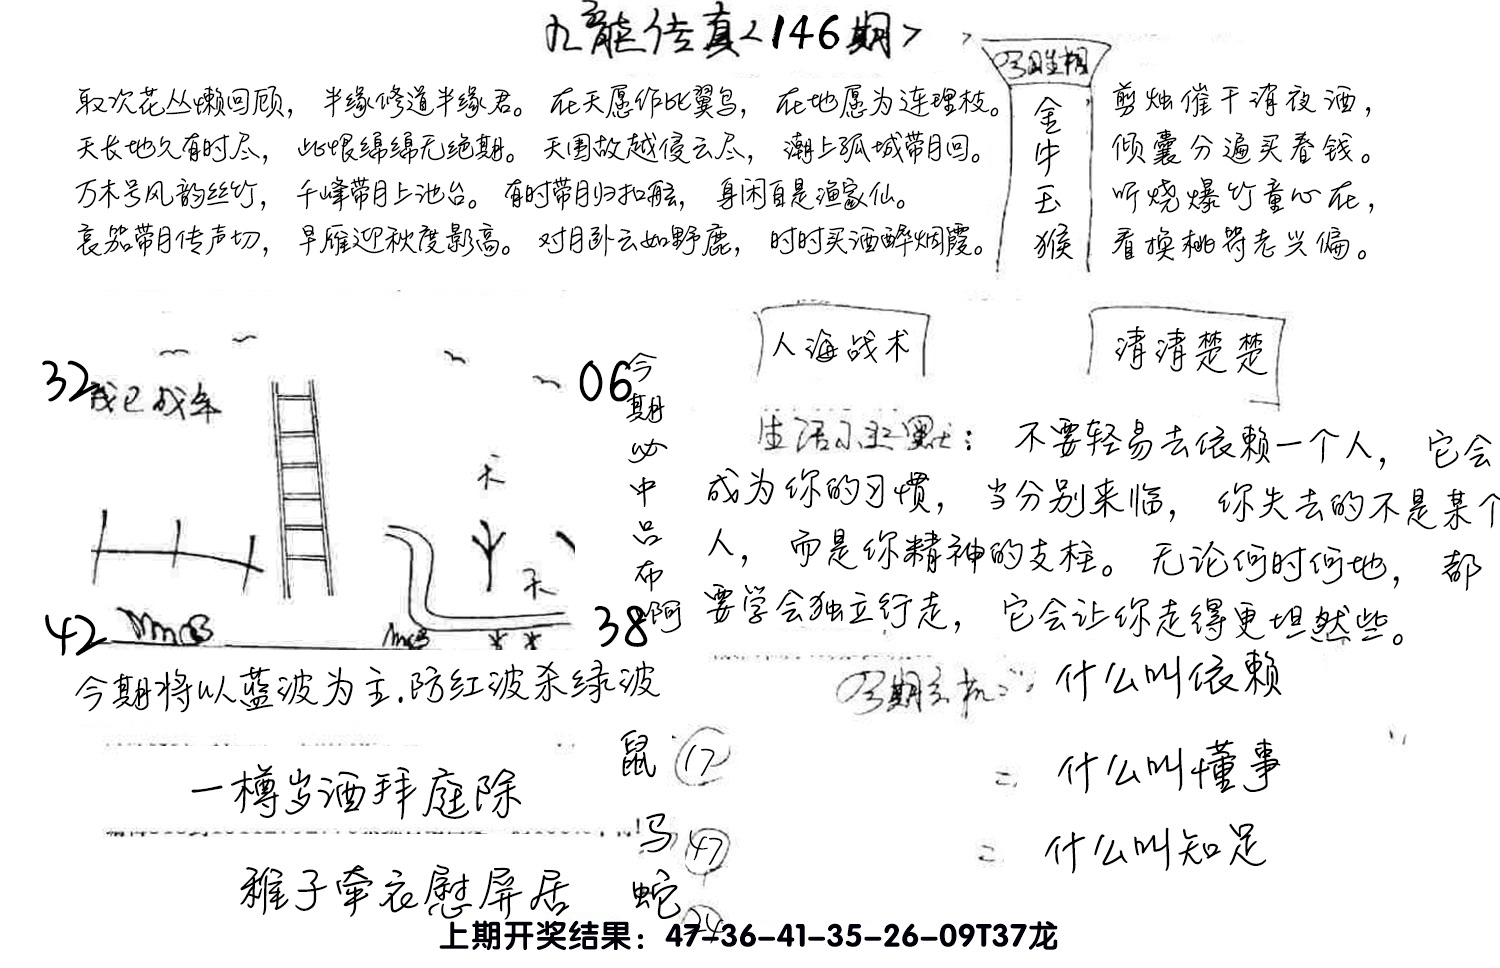 九龙传真<146期>
取次花丛懒回顾，半缘修道半缘君。在天愿作比翼鸟，在地愿为连理枝。
天长地久有时尽，此恨绵绵无绝期。天围故越侵云尽，潮上孤城带月回。
万木号风韵丝竹，千峰带月上池台。有时带月归扣舷，身闲自是渔家仙。
哀笳带月传声切，早雁迎秋度影高。对月卧云如野鹿，时时买酒醉烟霞。
金牛玉猴
剪烛催干消夜酒，
倾囊分遍买春钱。
听烧爆竹童心在，
看换桃符老兴偏。
人海战术
清清楚楚
32
06
42
38
今期必中吕布啊
不要轻易去依赖一个人，它会
成为你的习惯，当分别来临，你失去的不是某个
人，而是你精神的支柱。无论何时何地，都
要学会独立行走，它会让你走得更坦然些。
今期将以蓝波为主.防红波杀绿波
什么叫依赖
什么叫懂事
什么叫知足
一樽岁酒拜庭除
稚子牵衣慰屏居
鼠 17
马 47
蛇
上期开奖结果：47-36-41-35-26-09T37龙